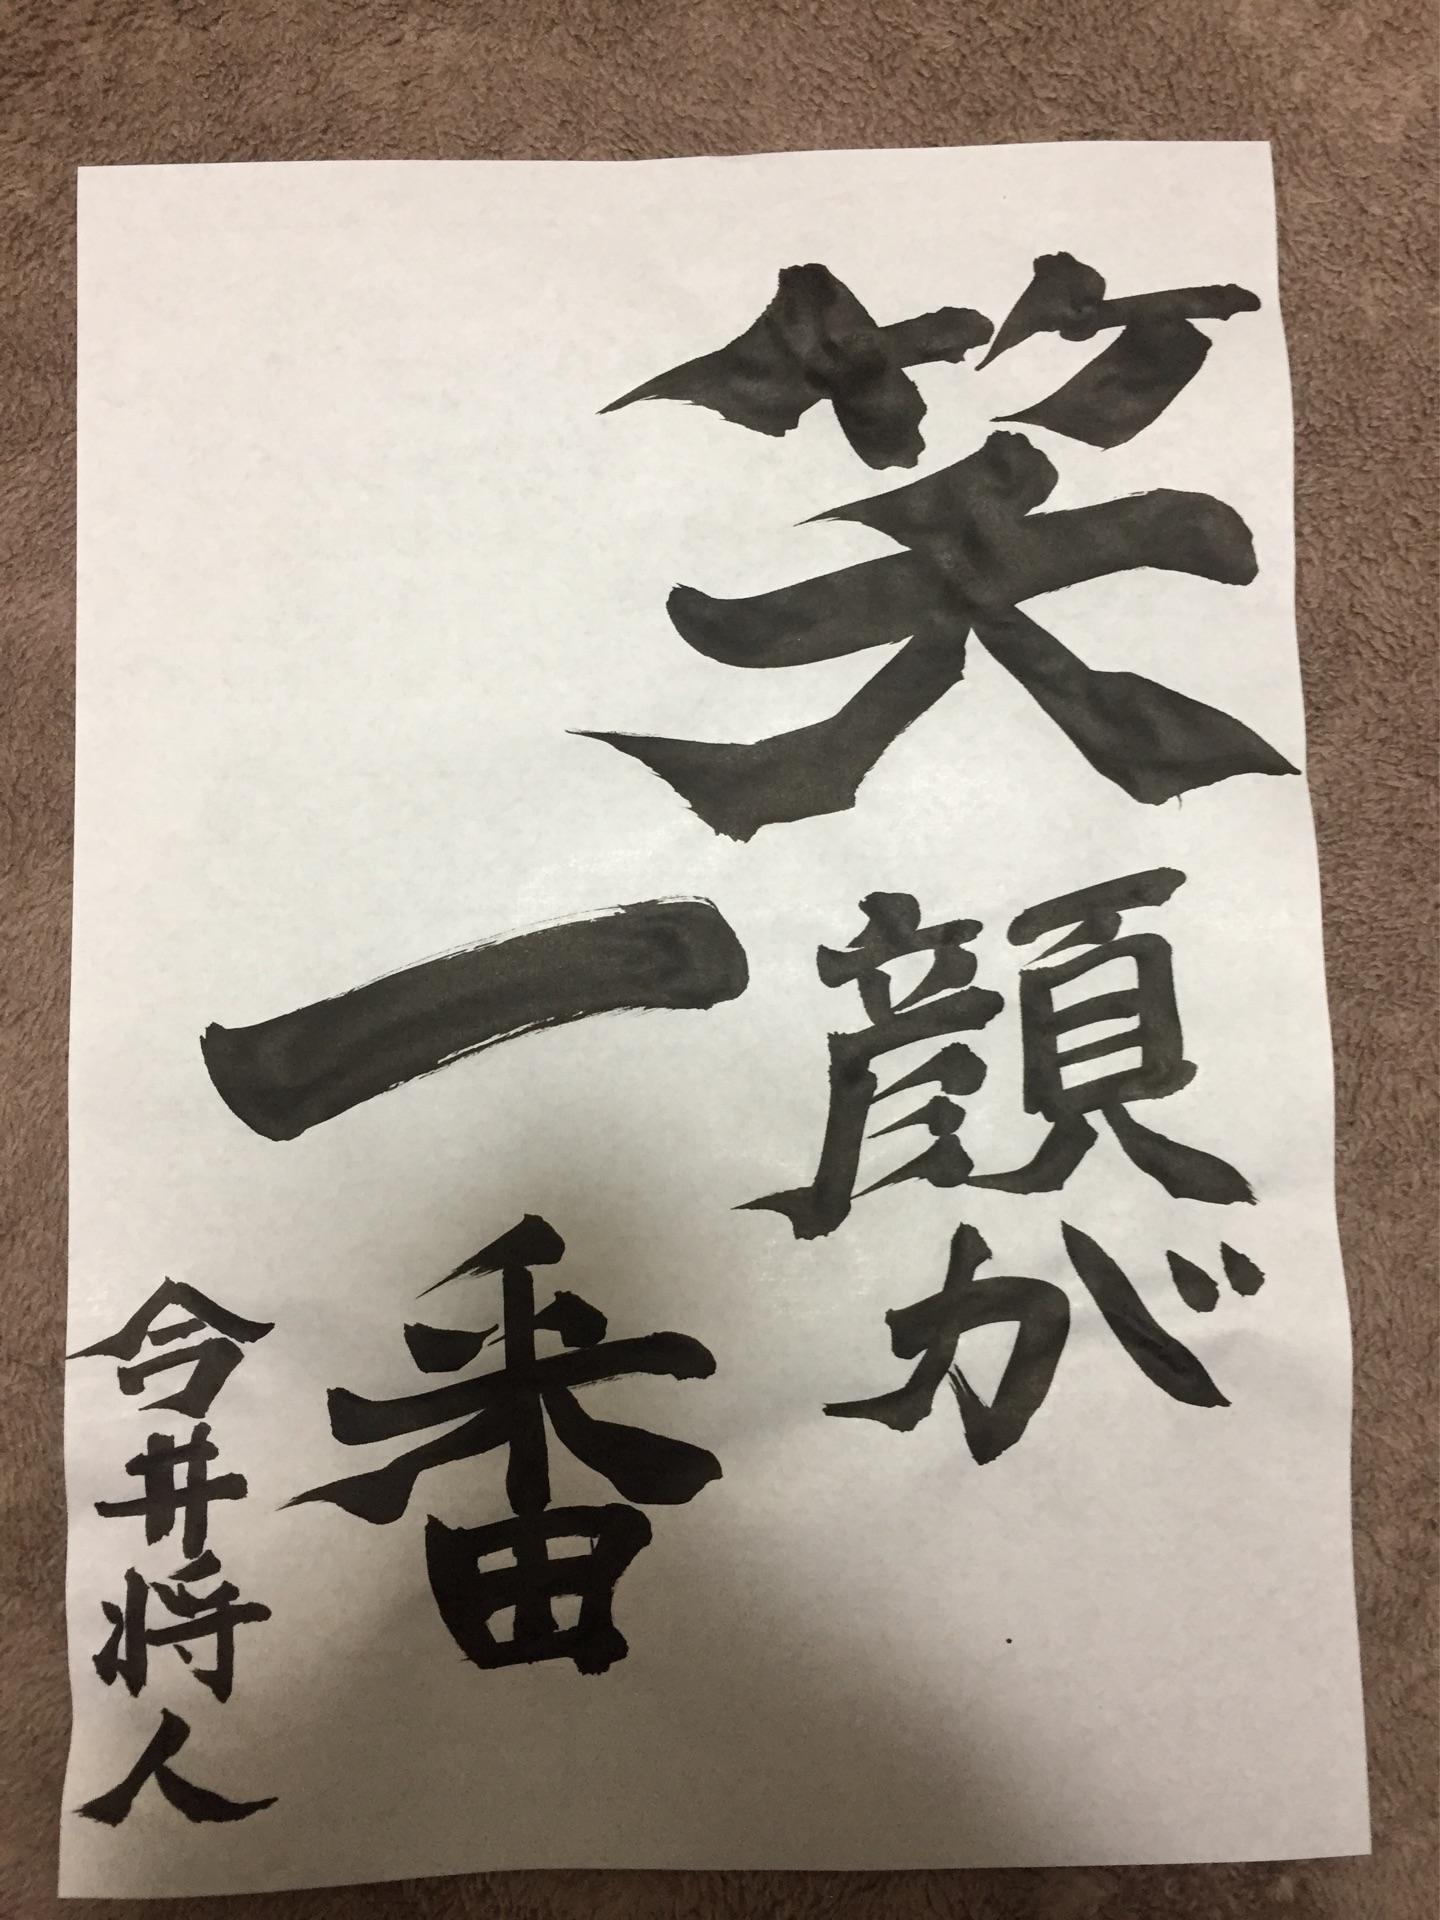 笑顔が
一番
今井将人